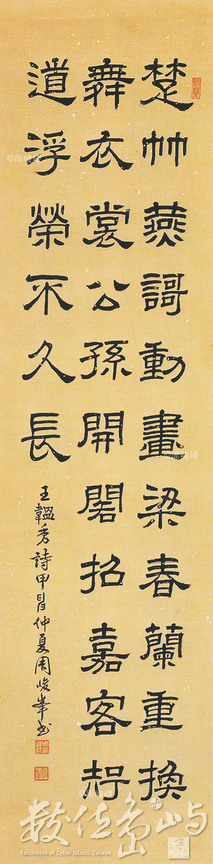 楚竹燕謌動畫梁春蘭重換
舞衣裳公孫開閣招嘉客知
道浮榮不久長
王韞秀詩甲 仲夏周峻峯書
數位島嶼
Exhibition of Cyber Island, Taiwan